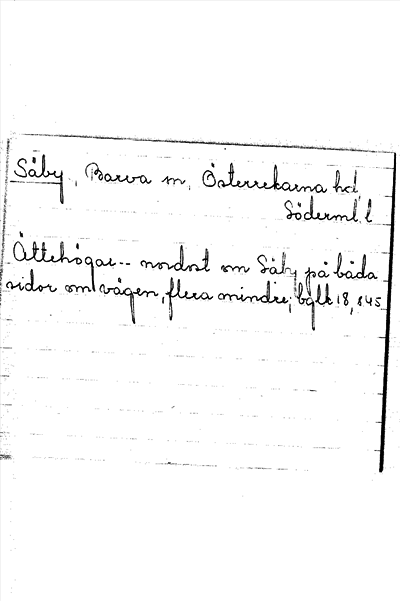 Säby, Barva sn, Österrekarna hd,
Söderml. l
Ättehögar -- nordost om Säby på båda
sidor om vägen, flera mindre; bglk 18, 845